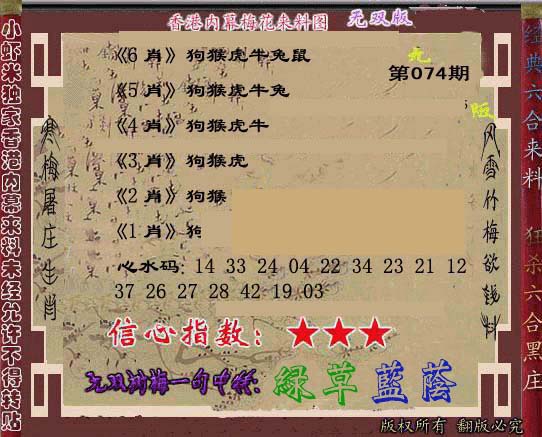 香港内幕梅花来料图 无双版
《6 肖》狗猴虎牛兔鼠
第074期
《5 肖》狗猴虎牛兔
《4 肖》狗猴虎牛
《3 肖》狗猴虎
《2 肖》狗猴
《1 肖》狗
心水码: 14 33 24 04 22 34 23 21 12
37 26 27 28 42 19 03
信心指数: ★★★
一句中特:
綠草藍蔭
版权所有 翻版必究
小虾米独家香港内幕来料未经允许不得转贴
寒梅屠庄生肖
风雪竹梅欲钱料
经典六合来料
狂杀六合黑庄